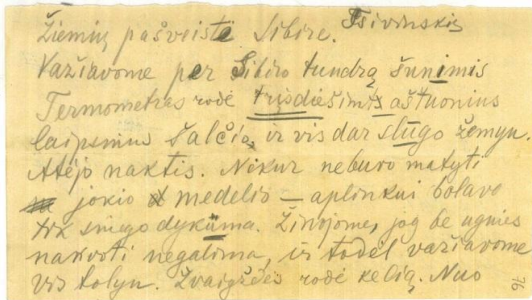 Žiemių pašveistė Sibire. Tsivinskis
Važiavome per Sibiro tundrą šunimis
Termometras rodė trisdešimts aštuonius
laipsnius šalčio, ir vis dar slūgo žemyn.
Atėjo naktis. Niekur nebuvo matyti
jokio medelio – aplinkui bolavo
tik sniego dykūma. Žinojome, jog be ugnies
nakvoti negalima, ir todėl važiavome
vis tolyn. Žvaigždės rodė kelią. Nuo
16